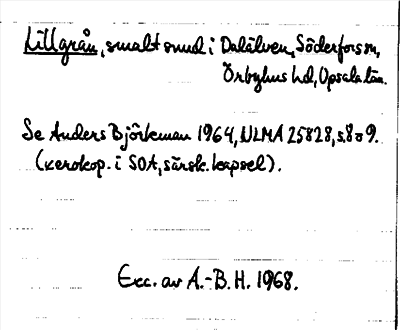 Lillgrån, smalt sund i Dalälven, Söderfors sn,
Örbyhus hd, Upsala län.
Se Anders Björkman 1964, ULMA 25828, s. 8 o 9.
(xerokop. i SOA, särsk. kapsel).
Exc. av A.-B. H. 1968.